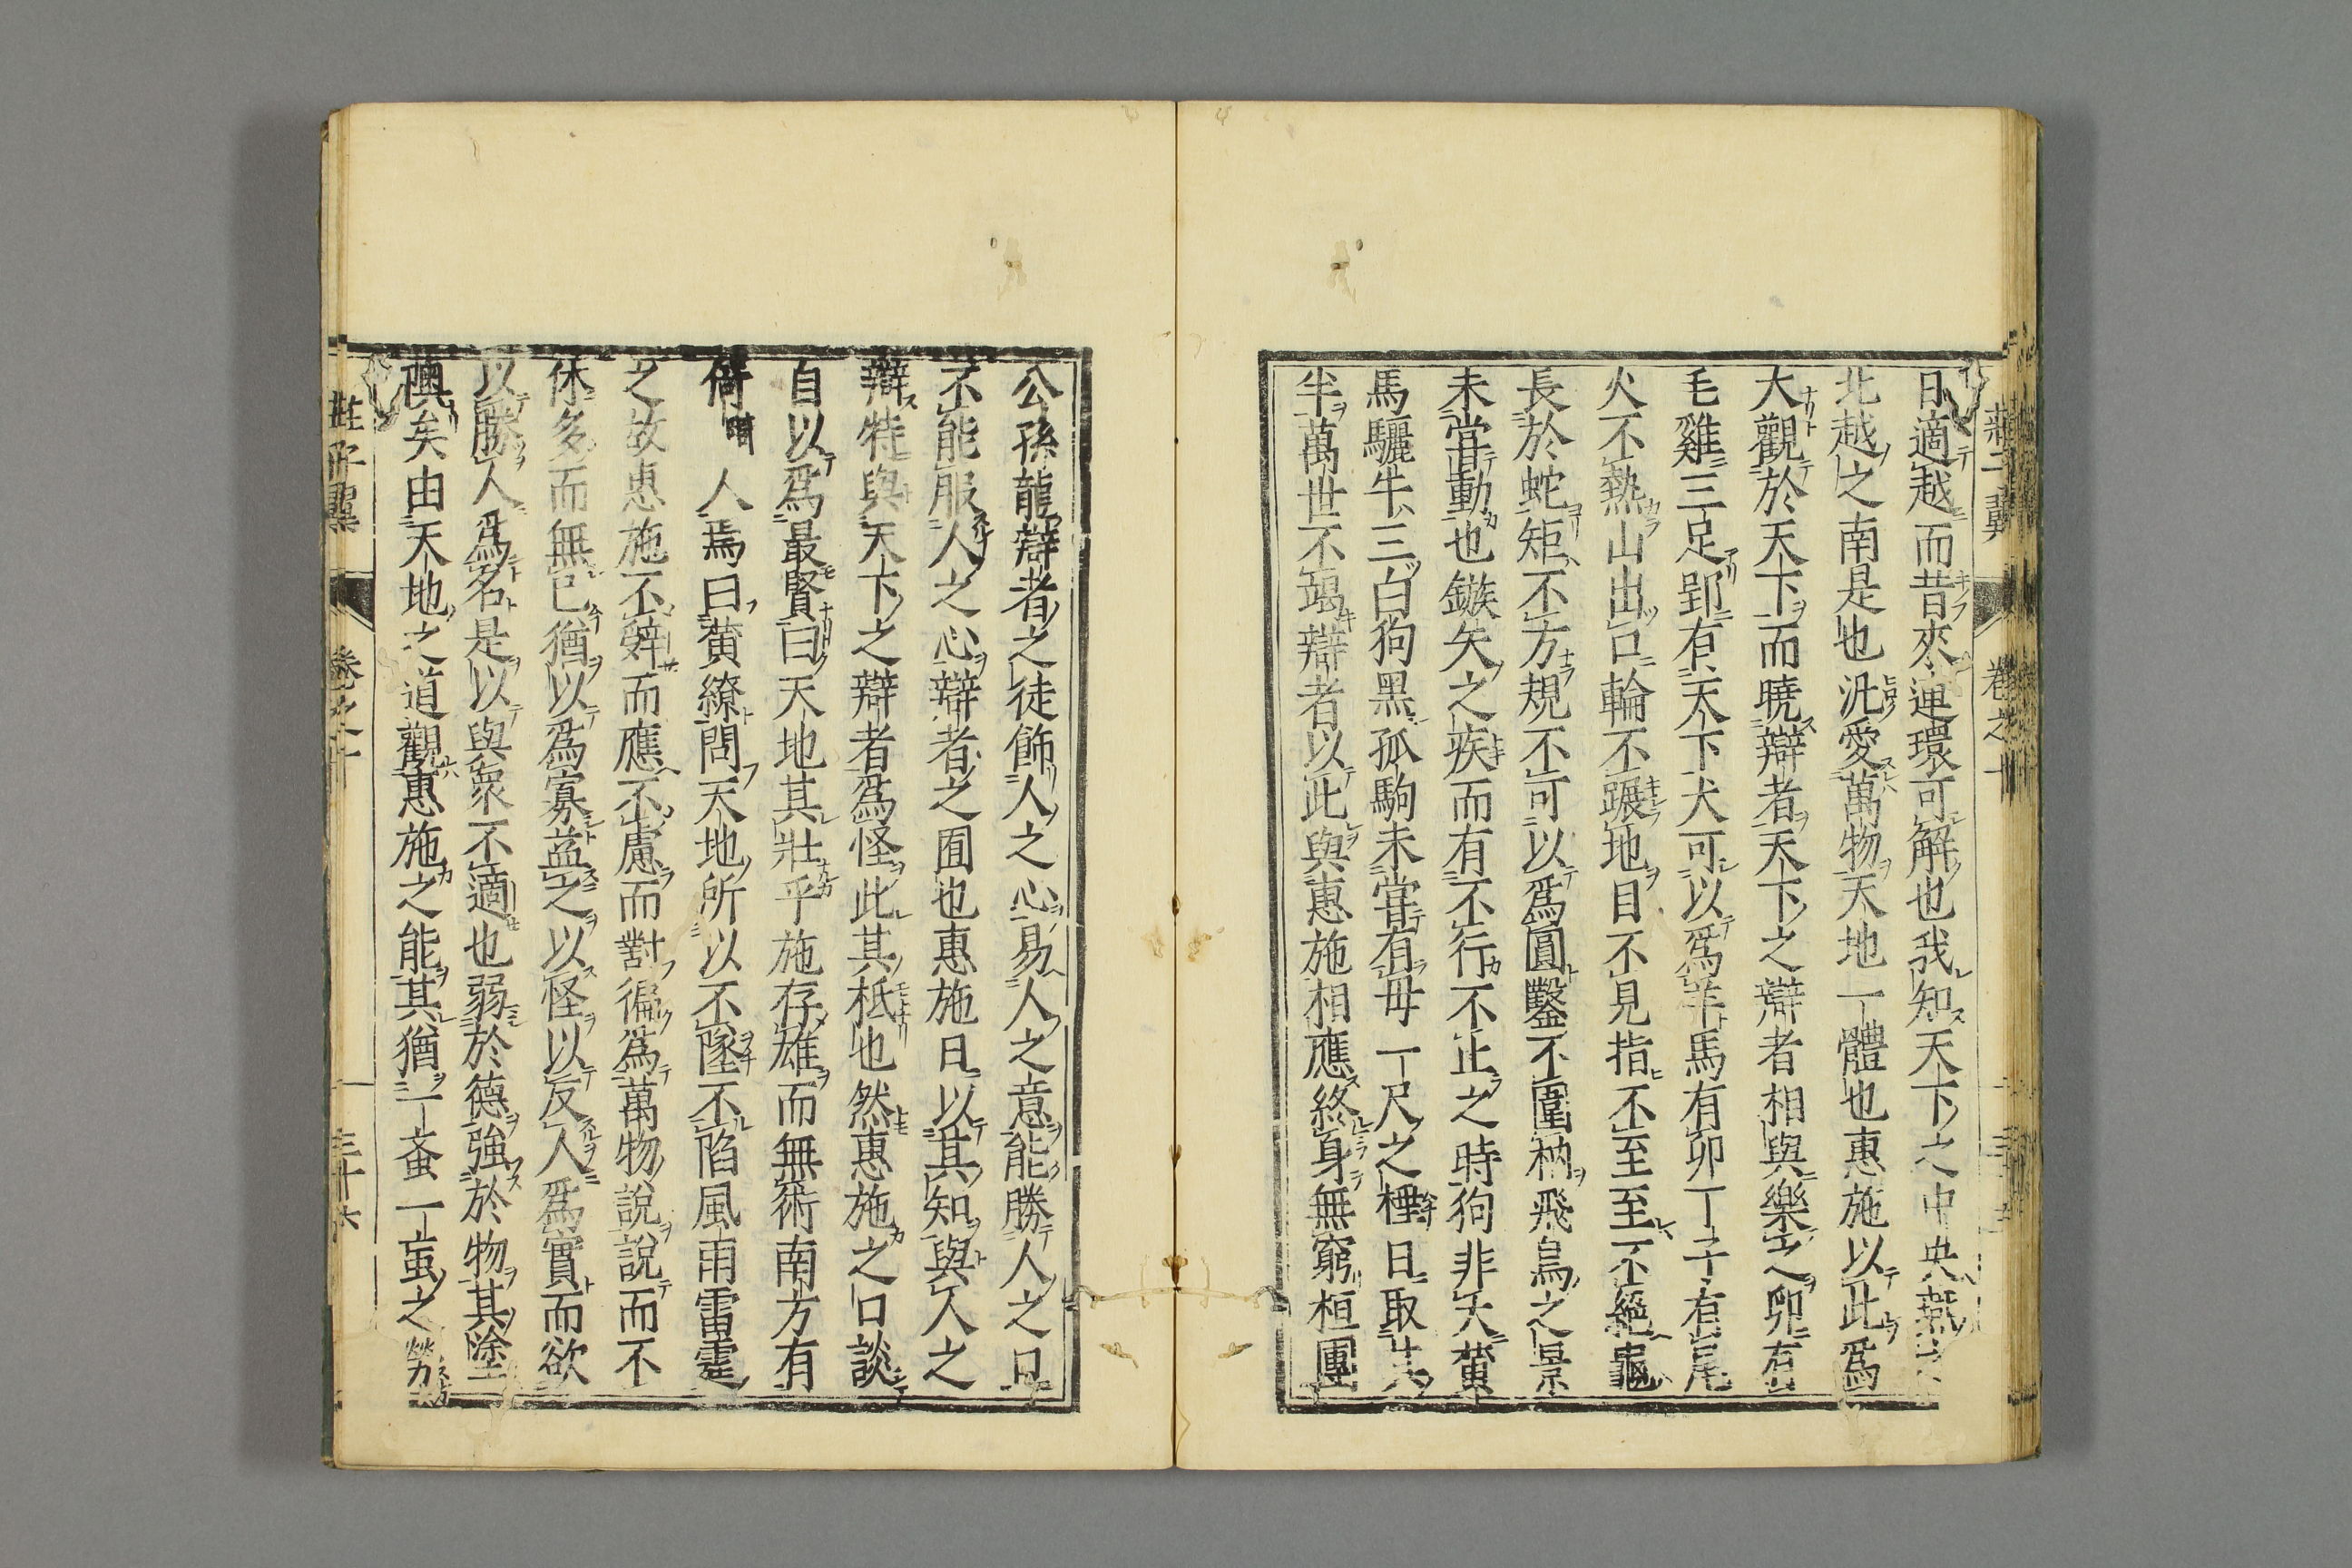 日適越而昔來連環可解也我知天下之中央燕之
北越之南是也汎愛萬物天地一體也惠施以此爲
大觀於天下而曉辯者天下之辯者相與樂之卵有
毛雞三足郢有天下犬可以爲羊馬有卵丁子有尾
火不熱山出口輪不蹍地目不見指不至至不絕龜
長於蛇矩不方規不可以爲圓鑿不圍枘飛鳥之景
未嘗動也鏃矢之疾而有不行不止之時狗非犬黄
馬驪牛三白狗黑孤駒未嘗有母一尺之棰日取其
半萬世不竭辯者以此與惠施相應終身無窮桓團
公孫龍辯者之徒飾人之心易人之意能勝人之口
不能服人之心辯者之囿也惠施日以其知與人之
辯特與天下之辯者爲怪此其柢也然惠施之口談
自以爲最賢曰天地其壯乎施存雄而無術南方有
倚人焉曰黄繚問天地所以不墜不陷風雨雷霆
之故惠施不辭而應不慮而對徧爲萬物說說而不
休多而無已猶以爲寡益之以怪以反人爲實而欲
以勝人爲名是以與衆不適也弱於德強於物其塗
隩矣由天地之道觀惠施之能其猶一蚉一䖟之勞
莊子翼 卷之十 三十六